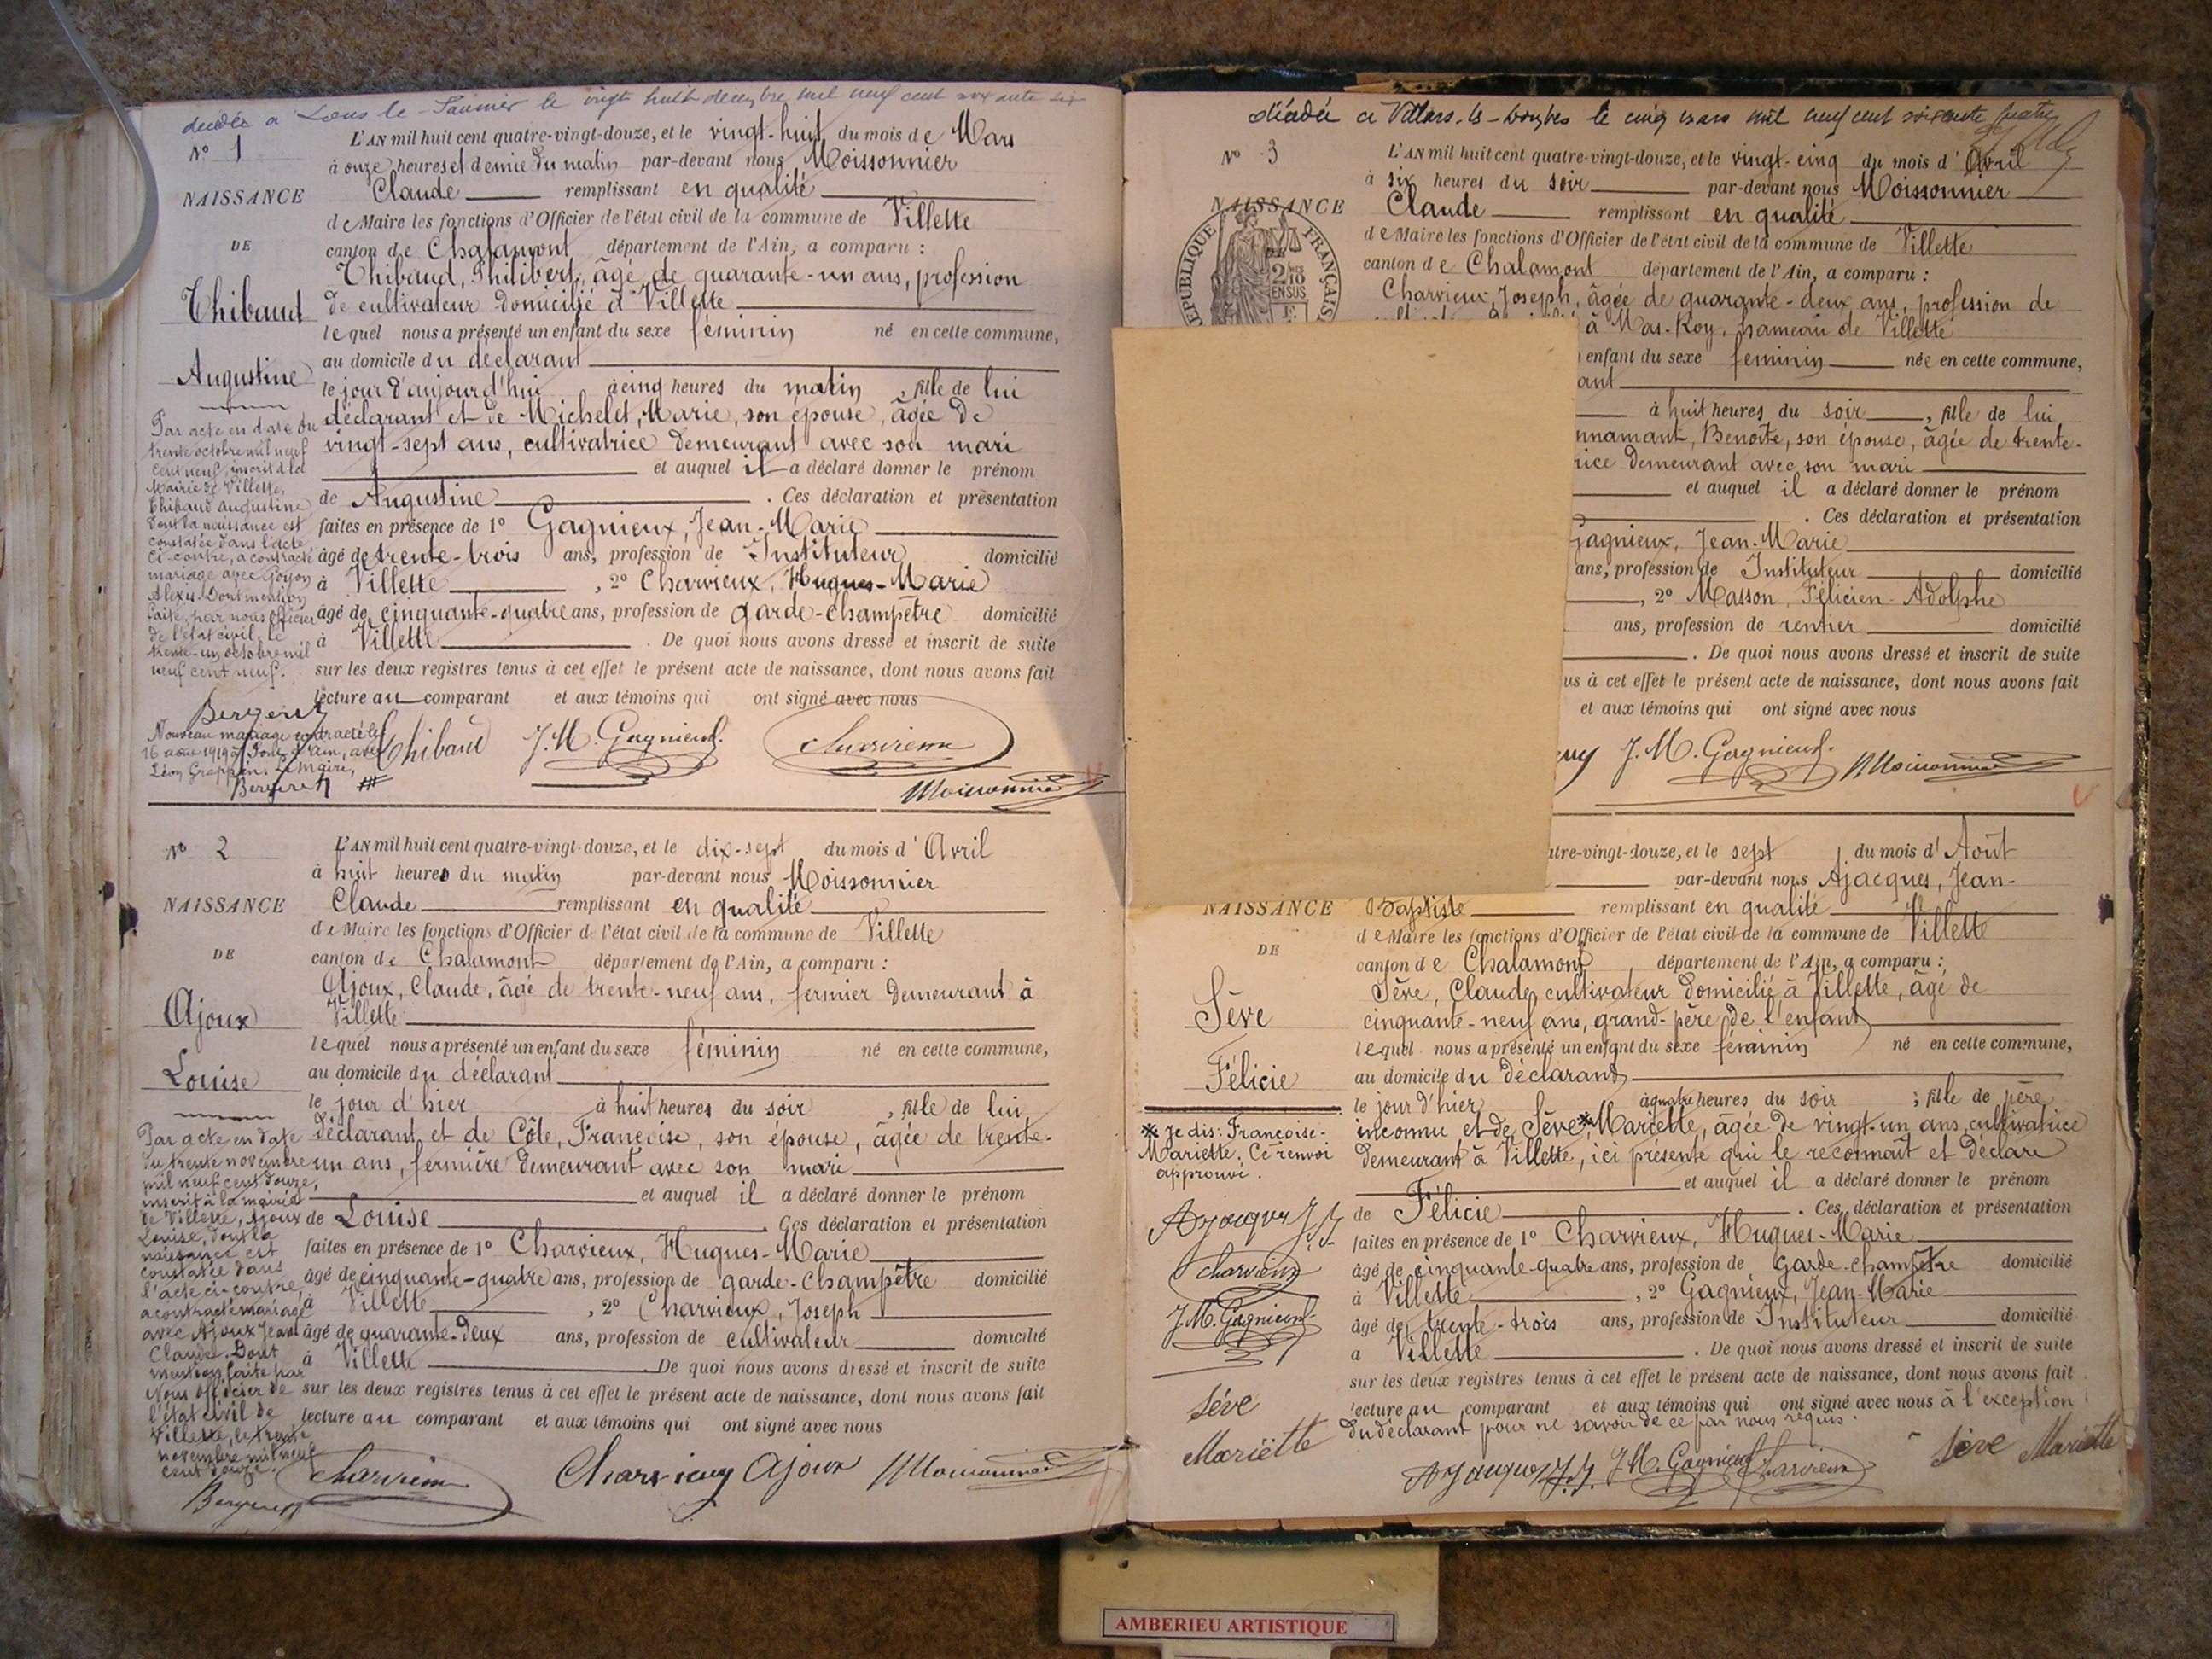 decédée a Lons le Saunier le vingt huit decembre mil neuf cent soixante six
N° 1
NAISSANCE
DE
Thibaud
Augustine
L'AN mil huit cent quatre-vingt-douze, et le vingt-huit du mois de Mars
à onze heures et demie du matin par-devant nous Moissonnier
Claude remplissant en qualité
de Maire les fonctions d'Officier de l'état civil de la commune de Villette
canton de Chalamont département de l'Ain, a comparu :
Thibaud, Philibert, âgé de quarante-un ans, profession
de cultivateur domicilié à Villette
lequel nous a présenté un enfant du sexe féminin né en cette commune,
au domicile du déclarant
le jour d'aujourd'hui à cinq heures du matin, fille de lui
déclarant et de Michelet, Marie, son épouse, âgée de
vingt-sept ans, cultivatrice demeurant avec son mari
et auquel il a déclaré donner le prénom
de Augustine. Ces déclaration et présentation
faites en présence de 1° Gagnieux, Jean-Marie
âgé de trente-trois ans, profession de Instituteur domicilié
à Villette, 2° Charvieux, Hugues-Marie
âgé de cinquante-quatre ans, profession de garde-champêtre domicilié
à Villette. De quoi nous avons dressé et inscrit de suite
sur les deux registres tenus à cet effet le présent acte de naissance, dont nous avons fait
lecture au comparant et aux témoins qui ont signé avec nous
Par acte en date du
trente octobre mil neuf
cent neuf, inscrit à la
Mairie de Villette,
Thibaud Augustine
dont la naissance est
constatée dans l'acte
ci-contre, a contracté
mariage avec Goyon
Alexis. Dont mention
faite par nous officier
de l'état civil le
trente-un octobre mil
neuf cent neuf.
Nouveau mariage contracté le
16 août 1919 à Pont d'Ain, avec
Léon Grappin. Le Maire,
Thibaud J.M. Gagnieux Charvieux
Moissonnier
N° 2
NAISSANCE
DE
Ajoux
Louise
L'AN mil huit cent quatre-vingt-douze, et le dix-sept du mois d'Avril
à huit heures du matin par-devant nous Moissonnier
Claude remplissant en qualité
de Maire les fonctions d'Officier de l'état civil de la commune de Villette
canton de Chalamont département de l'Ain, a comparu :
Ajoux, Claude, âgé de trente-neuf ans, fermier demeurant à
Villette
lequel nous a présenté un enfant du sexe féminin né en cette commune,
au domicile du déclarant
le jour d'hier à huit heures du soir, fille de lui
déclarant et de Côte, Françoise, son épouse, âgée de trente-
un ans, fermière demeurant avec son mari
et auquel il a déclaré donner le prénom
de Louise. Ces déclaration et présentation
faites en présence de 1° Charvieux, Hugues-Marie
âgé de cinquante-quatre ans, profession de garde-champêtre domicilié
à Villette, 2° Charvieux, Joseph
âgé de quarante-deux ans, profession de cultivateur domicilié
à Villette De quoi nous avons dressé et inscrit de suite
sur les deux registres tenus à cet effet le présent acte de naissance, dont nous avons fait
lecture au comparant et aux témoins qui ont signé avec nous
Par acte en date
du trente novembre
mil neuf cent douze,
inscrit à la mairie
de Villette, Ajoux
Louise, dont la
naissance est
constatée dans
l'acte ci-contre,
a contracté mariage
avec Ajoux Jean
Claude. Dont
mention faite par
Nous officier de
l'état civil de
Villette, le trente
novembre mil neuf
cent douze.
Charvieux Charvieux Ajoux Moissonnier
décédée a Villars-les-Dombes le cinq mars mil neuf cent soixante quatre
N° 3
NAISSANCE
RÉPUBLIQUE FRANÇAISE
2/10
EN SUS
L'AN mil huit cent quatre-vingt-douze, et le vingt-cinq du mois d'Avril
à six heures du soir par-devant nous Moissonnier
Claude remplissant en qualité
de Maire les fonctions d'Officier de l'état civil de la commune de Villette
canton de Chalamont département de l'Ain, a comparu :
Charvieux, Joseph, âgée de quarante-deux ans, profession de
à Mas-Roy, hameau de Villette
enfant du sexe féminin née en cette commune,
ant
à huit heures du soir, fille de lui
nnamant, Benoîte, son épouse, âgée de trente-
rice demeurant avec son mari
et auquel il a déclaré donner le prénom
. Ces déclaration et présentation
Gagnieux, Jean-Marie
ans, profession de Instituteur domicilié
, 2° Masson, Félicien-Adolphe
ans, profession de rentier domicilié
. De quoi nous avons dressé et inscrit de suite
us à cet effet le présent acte de naissance, dont nous avons fait
et aux témoins qui ont signé avec nous
J.M. Gagnieux Moissonnier
NAISSANCE
DE
Sève
Félicie
tre-vingt-douze, et le sept du mois d'Août
par-devant nous Ajacques, Jean-
Baptiste remplissant en qualité
de Maire les fonctions d'Officier de l'état civil de la commune de Villette
canton de Chalamont département de l'Ain, a comparu :
Sève, Claude, cultivateur domicilié à Villette, âgé de
cinquante-neuf ans, grand-père de l'enfant
lequel nous a présenté un enfant du sexe féminin né en cette commune,
au domicile du déclarant
le jour d'hier à quatre heures du soir ; fille de père
inconnu et de Sève * Mariette, âgée de vingt-un ans, cultivatrice
demeurant à Villette, ici présente qui le reconnaît et déclare
et auquel il a déclaré donner le prénom
de Félicie. Ces déclaration et présentation
faites en présence de 1° Charvieux, Hugues-Marie
âgé de cinquante-quatre ans, profession de garde-champêtre domicilié
à Villette, 2° Gagnieux, Jean-Marie
âgé de trente-trois ans, profession de Instituteur domicilié
a Villette. De quoi nous avons dressé et inscrit de suite
sur les deux registres tenus à cet effet le présent acte de naissance, dont nous avons fait
lecture au comparant et aux témoins qui ont signé avec nous à l'exception
du déclarant pour ne savoir de ce par nous requis.
* Je dis: Françoise-
Mariette. Ce renvoi
approuvé.
Ajacques J.B.
Charvieux
J.M. Gagnieux
Sève
Mariëtte
Ajacques J.B. J.M. Gagnieux Charvieux Sève Mariette
AMBERIEU ARTISTIQUE